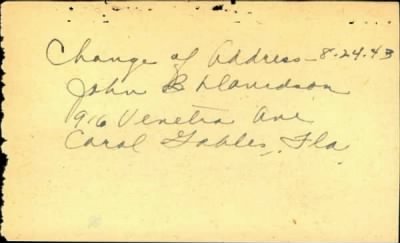 Change of Address - 8-24-43
John B Davidson
916 Venetia Ave
Coral Gables, Fla